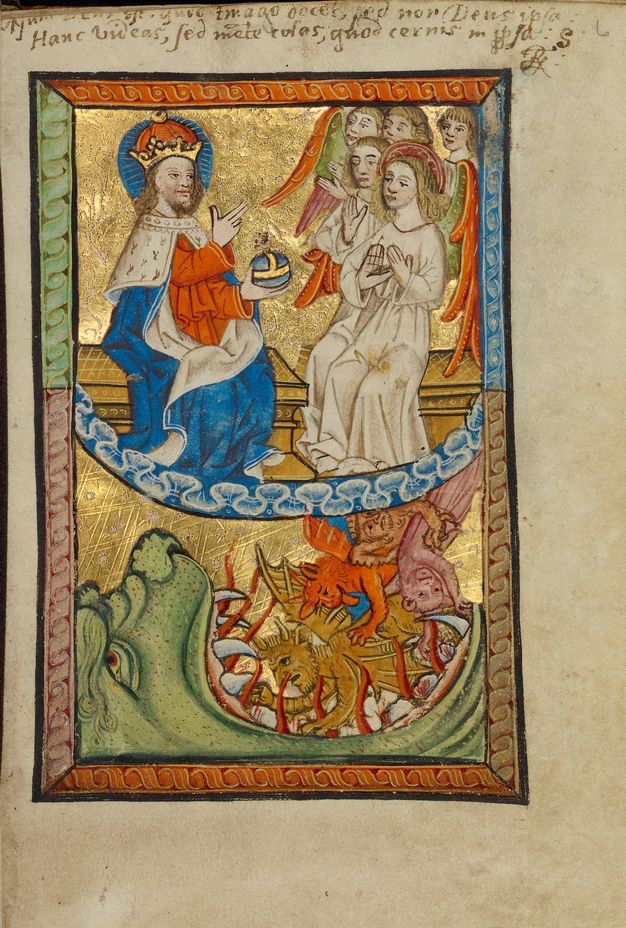 Deus est, quod Imago docet, sed non Deus ipsa
Hanc Videas, sed mẽte colas, quod cernis in ipsa. S
6